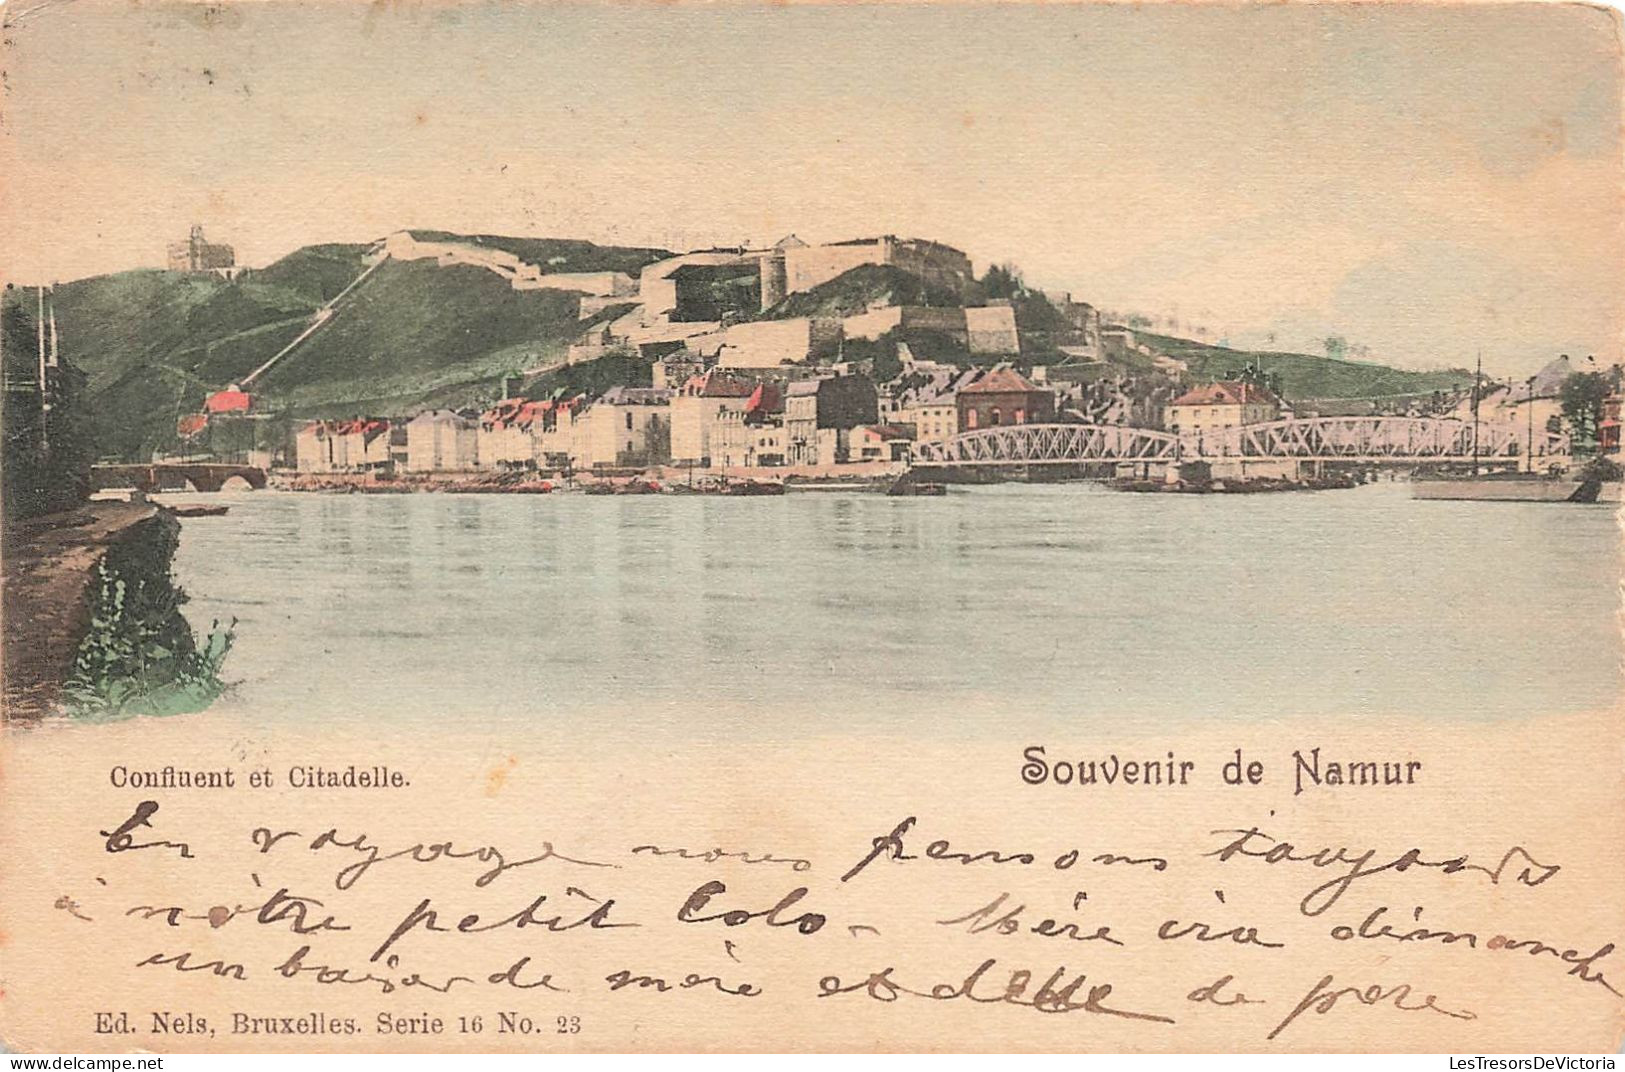 Confluent et Citadelle.
Souvenir de Namur
En voyage nous pensons toujours
à nôtre petit Colo - Mère ira dimanche
un baiser de mère et de de père
Ed. Nels, Bruxelles. Serie 16 No. 23
LesTresorsDeVictoria